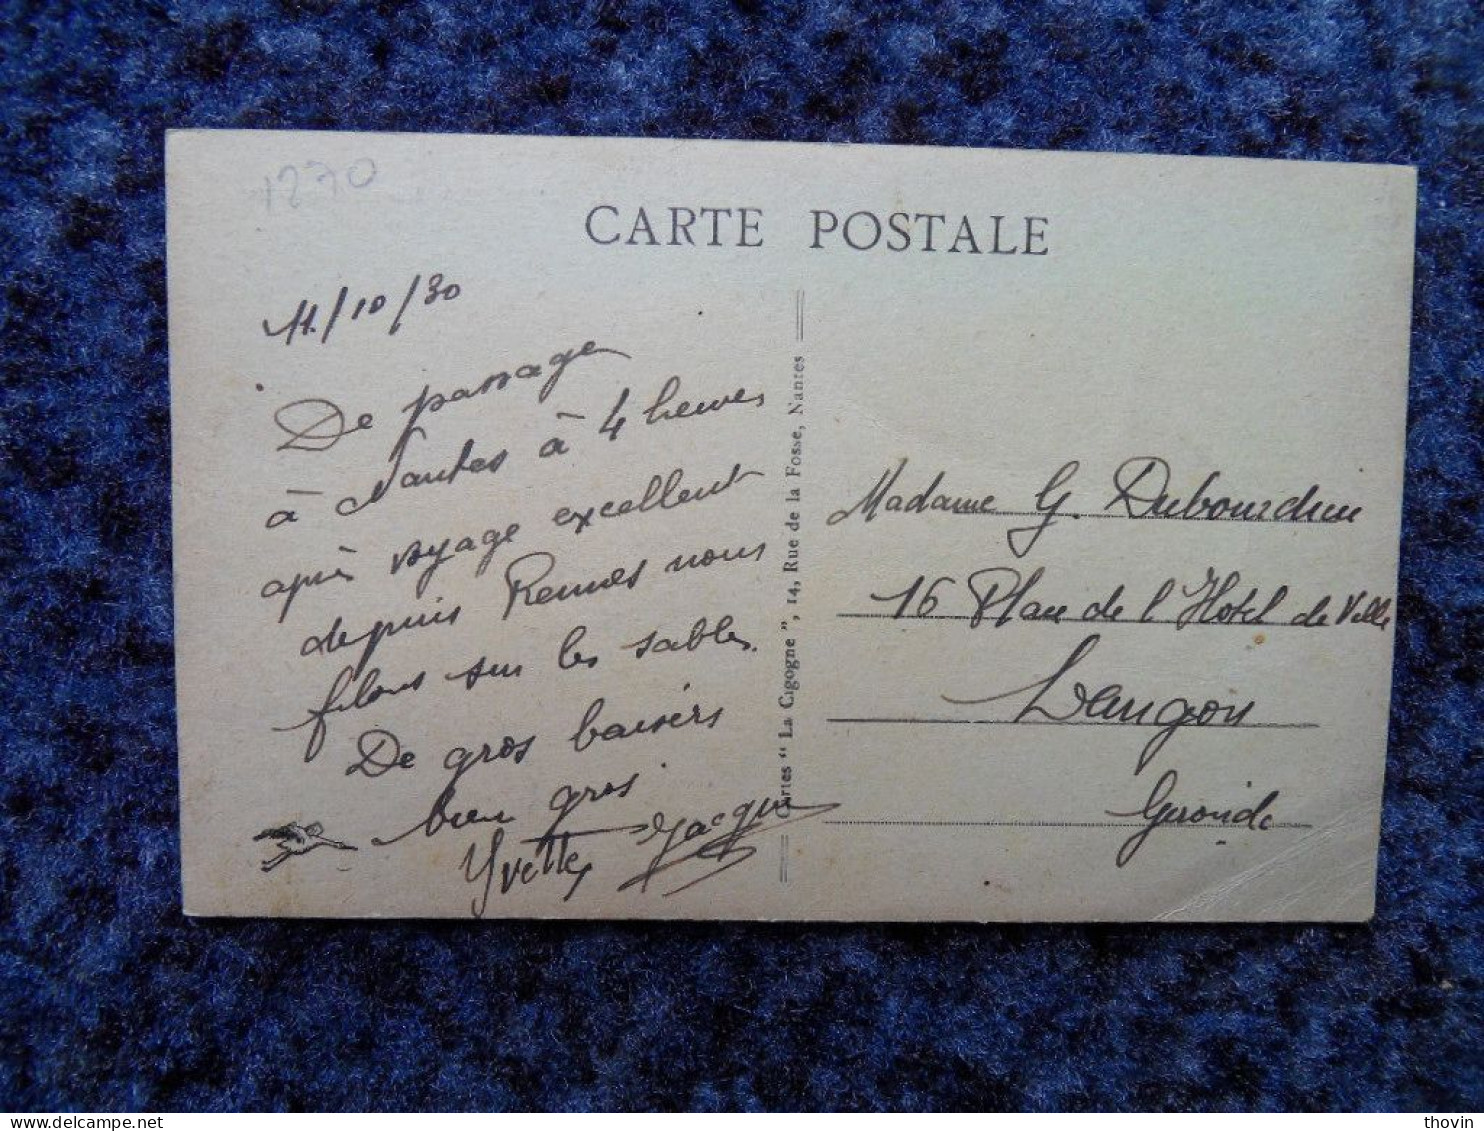 1270
CARTE POSTALE
11/10/30
De passage
à Nantes à 4 heures
après voyage excellent
depuis Rennes nous
filons sur les sables.
De gros baisers
bien gros
Yvette Jacques
Cartes " La Cigogne ", 14, Rue de la Fosse, Nantes
Madame G. Dubourdieu
16 Place de l'Hotel de Ville
Langon
Gironde
thovin